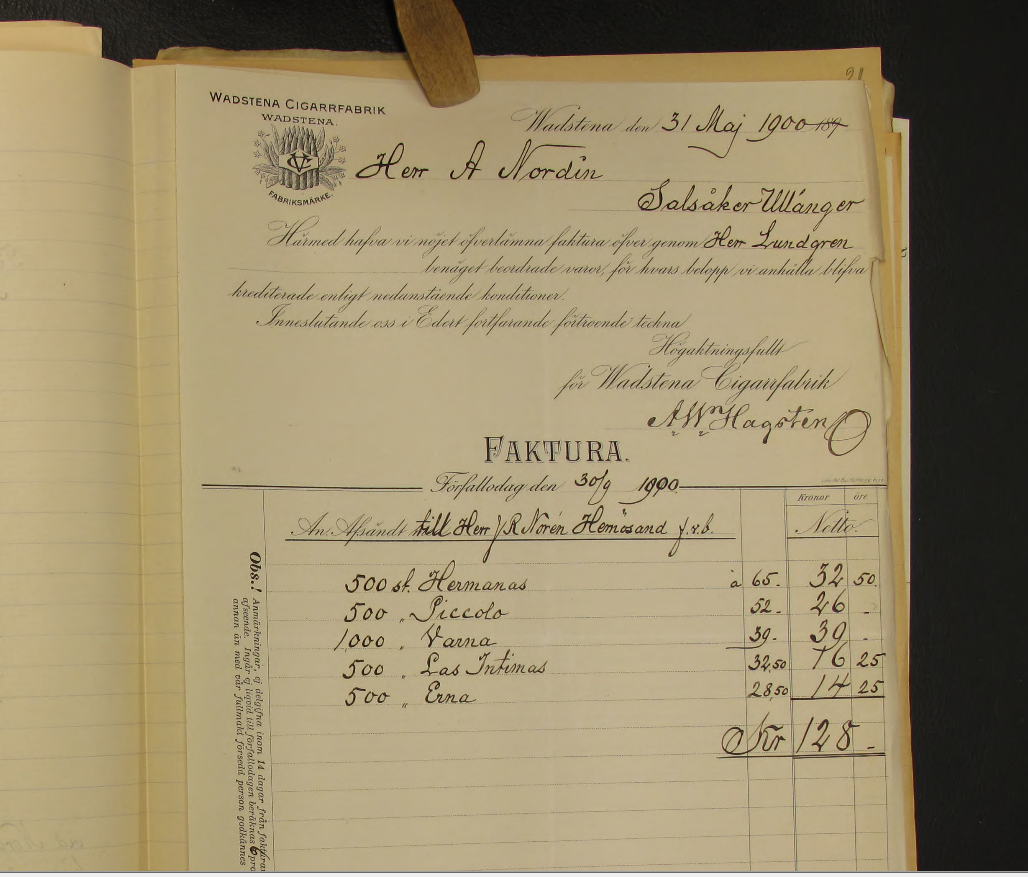 WADSTENA CIGARRFABRIK
WADSTENA.
VC
FABRIKSMÄRKE.
Wadstena den 31 Maj 1900 189
Herr A Nordin
Salsåker Ullånger
Härmed hafva vi nöjet öfverlämna faktura öfver genom Herr Lundgren
benäget beordrade varor, för hvars belopp vi anhålla blifva
krediterade enligt nedanstående konditioner.
Inneslutande oss i Edert fortfarande förtroende teckna
Högaktningsfullt
för Wadstena Cigarrfabrik
A Wn Hagsten
FAKTURA.
Förfallodag den 30/9 1900
Kronor öre
An Afsändt till Herr J R Norén Hernösand f.v.b. Netto.
500 st. Hermanas à 65.- 32 50.
500 „ Piccolo 52.- 26 -
1,000 „ Varna 39.- 39 -
500 „ Las Intimas 32,50 16 25
500 „ Erna 28,50 14 25
Kr 128 -
Obs.! Anmärkningar, ej delgifna inom 14 dagar från
afseende. Ingår ej liqvid till förfallodagen beräknas 6 pro
annan än med vår fullmakt försedd person godkännes